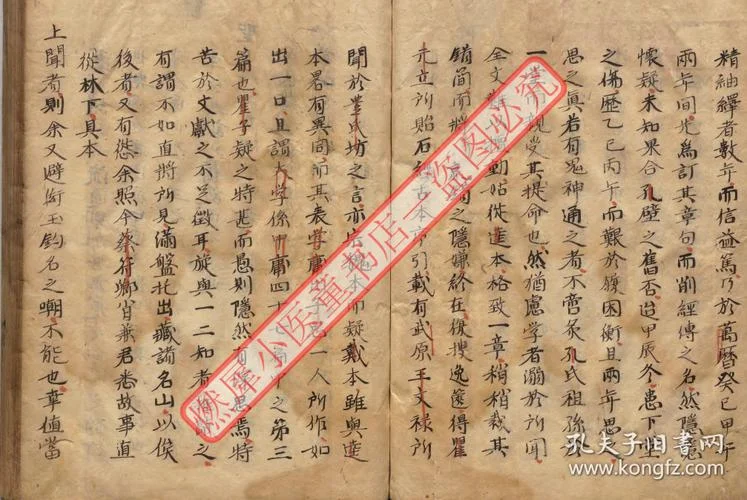 精紬繹者數年而信益篤乃於萬曆癸巳甲午
兩年間先為訂其章句而削經傳之名然隱隱
懷疑未知果合孔壁之舊否迨甲辰冬患下坐
之傷歷乙巳丙午而艱於 困衡且兩年思之
思之真若有鬼神通之者不啻炙孔氏祖孫
一堂而親受其提命也然猶慮學者溺於所聞
全文 動 徙進本格致一章稍稍裁其
錯簡而 之隱嫌終在復搜逸篋得瞿
元立所貽石經古本序引載有武原王文祿所
聞於豐氏坊之言亦出魏本而疑戴本雖與達
本畧有異同而其表學庸出子思一人所作如
出一口且謂大學係中庸四十 之第三
篇也瞿子疑之特甚而愚則隱然有 思焉特
苦於文獻之不足徵耳旋與一二知者 之
有謂不如直將所見滿盤托出藏諸名山以俟
後者又有慫余照今蔡符卿肖兼君悉故事直
從林下具本
上聞者則余又避衒玉釣名之嘲不能也幸值當
燃犀小医童书店 盗图必究
孔夫子旧书网
www.kongfz.com